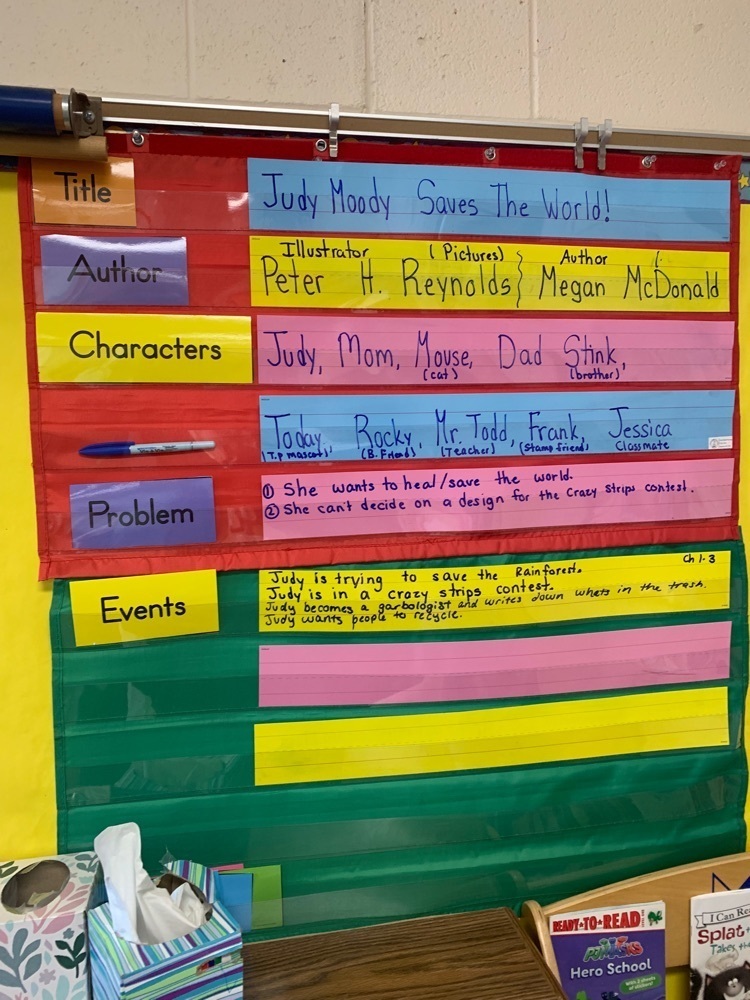 Title
Judy Moody Saves The World!
Illustrator (Pictures) Author
Author
Peter H. Reynolds} Megan McDonald
Characters
Judy, Mom, Mouse, Dad Stink,
(cat) (brother)
Today, Rocky, Mr. Todd, Frank, Jessica
(T.P mascot) (B. Friend) (Teacher) (Stamp friend) Classmate
Problem
① She wants to heal/save the world.
② She can't decide on a design for the Crazy Strips contest.
Events
Ch 1-3
Judy is trying to save the Rainforest.
Judy is in a crazy strips contest.
Judy becomes a garbologist and writes down whats in the trash.
Judy wants people to recycle.
READY-TO-READ
PJ MASKS
Hero School
I Can Rea
Splat
Takes